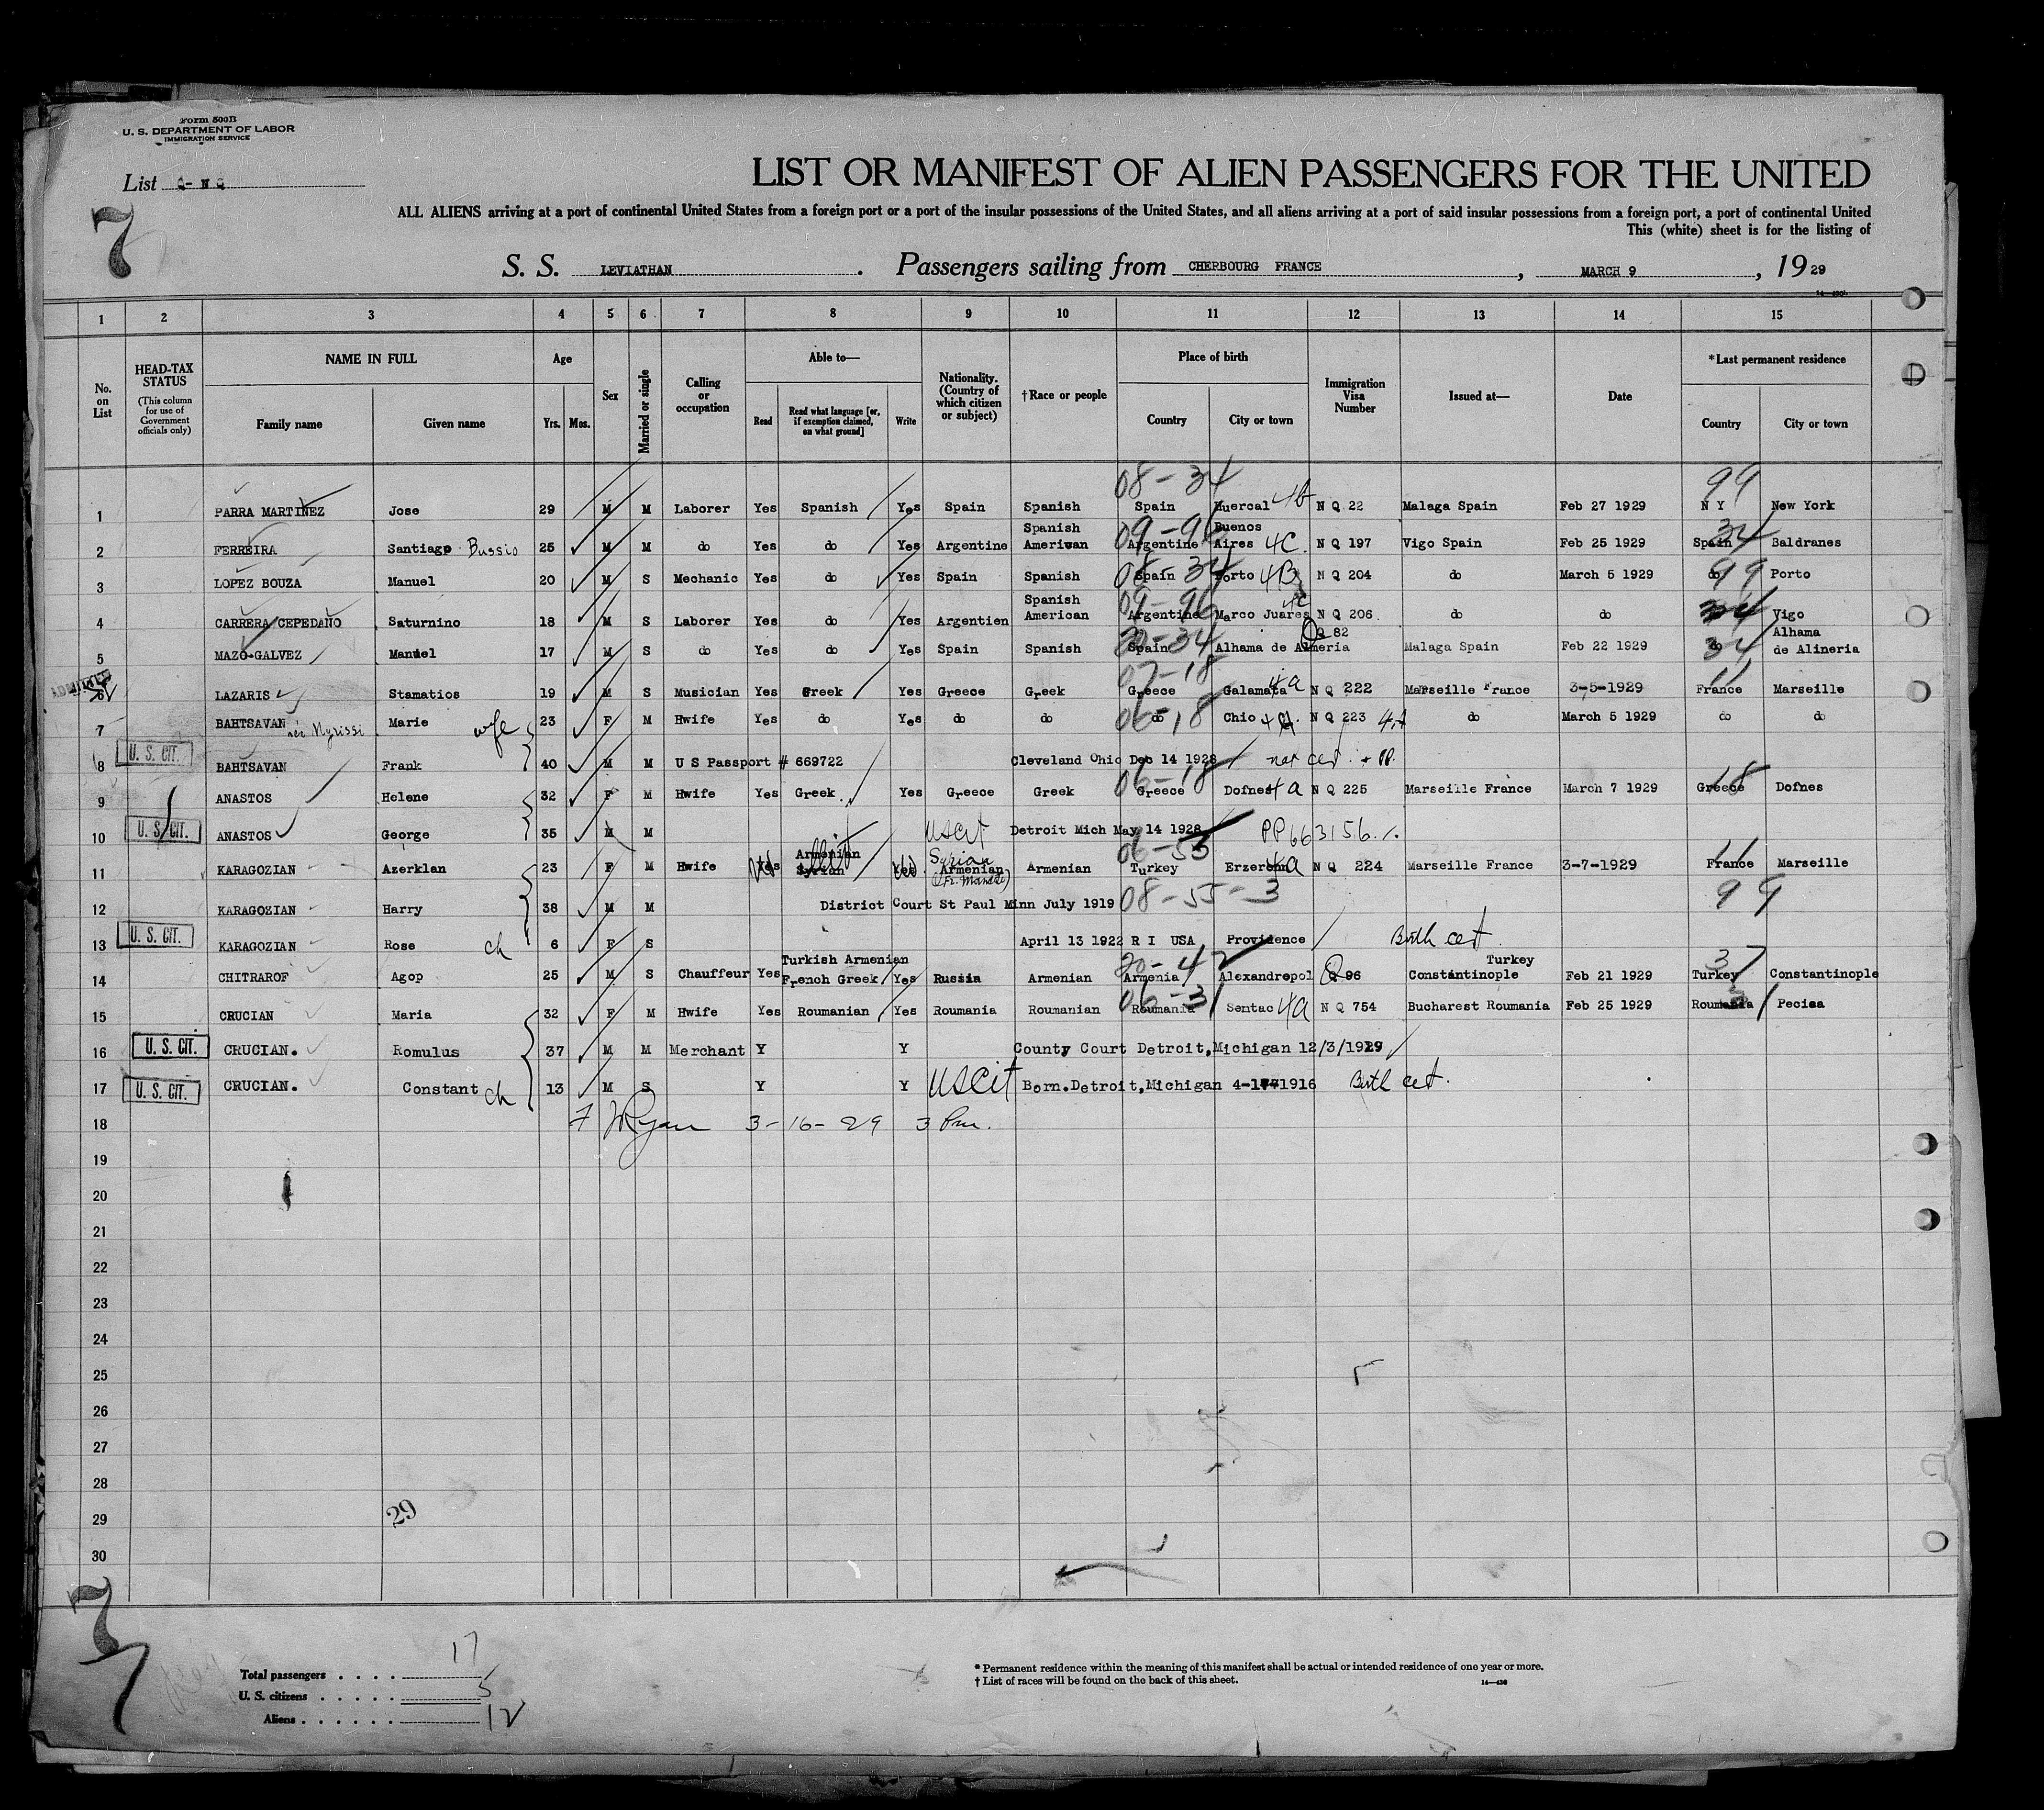 Form 500B
U. S. DEPARTMENT OF LABOR
IMMIGRATION SERVICE
List Q- N Q
7
LIST OR MANIFEST OF ALIEN PASSENGERS FOR THE UNITED
ALL ALIENS arriving at a port of continental United States from a foreign port or a port of the insular possessions of the United States, and all aliens arriving at a port of said insular possessions from a foreign port, a port of continental United
This (white) sheet is for the listing of
S. S. LEVIATHAN . Passengers sailing from CHERBOURG FRANCE , MARCH 9 , 1929
1 2 3 4 5 6 7 8 9 10 11 12 13 14 15
No. on List
HEAD-TAX STATUS (This column for use of Government officials only)
NAME IN FULL Family name Given name
Age Yrs. Mos.
Sex
Married or single
Calling or occupation
Able to— Read Read what language [or, if exemption claimed, on what ground] Write
Nationality. (Country of which citizen or subject)
†Race or people
Place of birth Country City or town
Immigration Visa Number
Issued at—
Date
*Last permanent residence Country City or town
08-34 99
1 PARRA MARTINEZ Jose 29 M M Laborer Yes Spanish Yes Spain Spanish Spain Huercal N Q 22 Malaga Spain Feb 27 1929 N Y New York
2 FERREIRA Santiago Bussio 25 M M do Yes do Yes Argentine Spanish American 09-96 Argentine Buenos Aires 4C. N Q 197 Vigo Spain Feb 25 1929 Spain 34 Baldranes
3 LOPEZ BOUZA Manuel 20 M S Mechanic Yes do Yes Spain Spanish 08-34 Spain Porto 4B N Q 204 do March 5 1929 do 99 Porto
4 CARRERA CEPEDANO Saturnino 18 M S Laborer Yes do Yes Argentien Spanish American 09-96 Argentine Marco Juares 4C N Q 206 do do Vigo
5 MAZO-GALVEZ Manuel 17 M S do Yes do Yes Spain Spanish 20-34 Spain Alhama de Almeria Q 82 Malaga Spain Feb 22 1929 do 34 Alhama de Alineria
ADMITTED
6 LAZARIS Stamatios 19 M S Musician Yes Greek Yes Greece Greek 07-18 Greece Galamata 4a N Q 222 Marseille France 3-5-1929 France 11 Marseille
7 BAHTSAVAN Marie wife 23 F M Hwife Yes do Yes do do 06-18 do Chio N Q 223 4A do March 5 1929 do do
U. S. CIT.
8 BAHTSAVAN Frank 40 M M U S Passport # 669722 Cleveland Ohio Dec 14 1928 nat cert. + PP.
9 ANASTOS Helene 32 F M Hwife Yes Greek Yes Greece Greek 06-18 Greece Dofnes 4a N Q 225 Marseille France March 7 1929 Greece 18 Dofnes
U. S. CIT.
10 ANASTOS George 35 M M USCit Detroit Mich May 14 1928 PP663156
11 KARAGOZIAN Azerklan 23 F M Hwife Yes Armenian Syrian Yes Syrian Armenian (Fr. Mandate) Armenian 06-55 Turkey 4a N Q 224 Marseille France 3-7-1929 France 11 Marseille
12 KARAGOZIAN Harry 38 M M District Court St Paul Minn July 1919 08-55-3 99
U. S. CIT.
13 KARAGOZIAN Rose ch 6 F S April 13 1922 R I USA Providence Birth cert.
14 CHITRAROF Agop 25 M S Chauffeur Yes Turkish Armenian French Greek Yes Russia Armenian 20-42 Armenia Alexandropol Q 96 Constantinople Turkey Feb 21 1929 Turkey 37 Constantinople
15 CRUCIAN Maria 32 F M Hwife Yes Roumanian Yes Roumania Roumanian 06-31 Roumania Sentac 4a N Q 754 Bucharest Roumania Feb 25 1929 Roumania Pecica
16 U. S. CIT. CRUCIAN. Romulus 37 M M Merchant Y Y County Court Detroit,Michigan 12/3/1929
17 U. S. CIT. CRUCIAN. Constant ch 13 M S Y Y USCit Born.Detroit,Michigan 4-17-1916 Birth cert.
18 Ryan 3-16-29 3 Pm.
19
20
21
22
23
24
25
26
27
28
29 29
30
7
Total passengers . . . . 17
U. S. citizens . . . . . 5
Aliens . . . . . . 12
* Permanent residence within the meaning of this manifest shall be actual or intended residence of one year or more.
† List of races will be found on the back of this sheet.
14—430